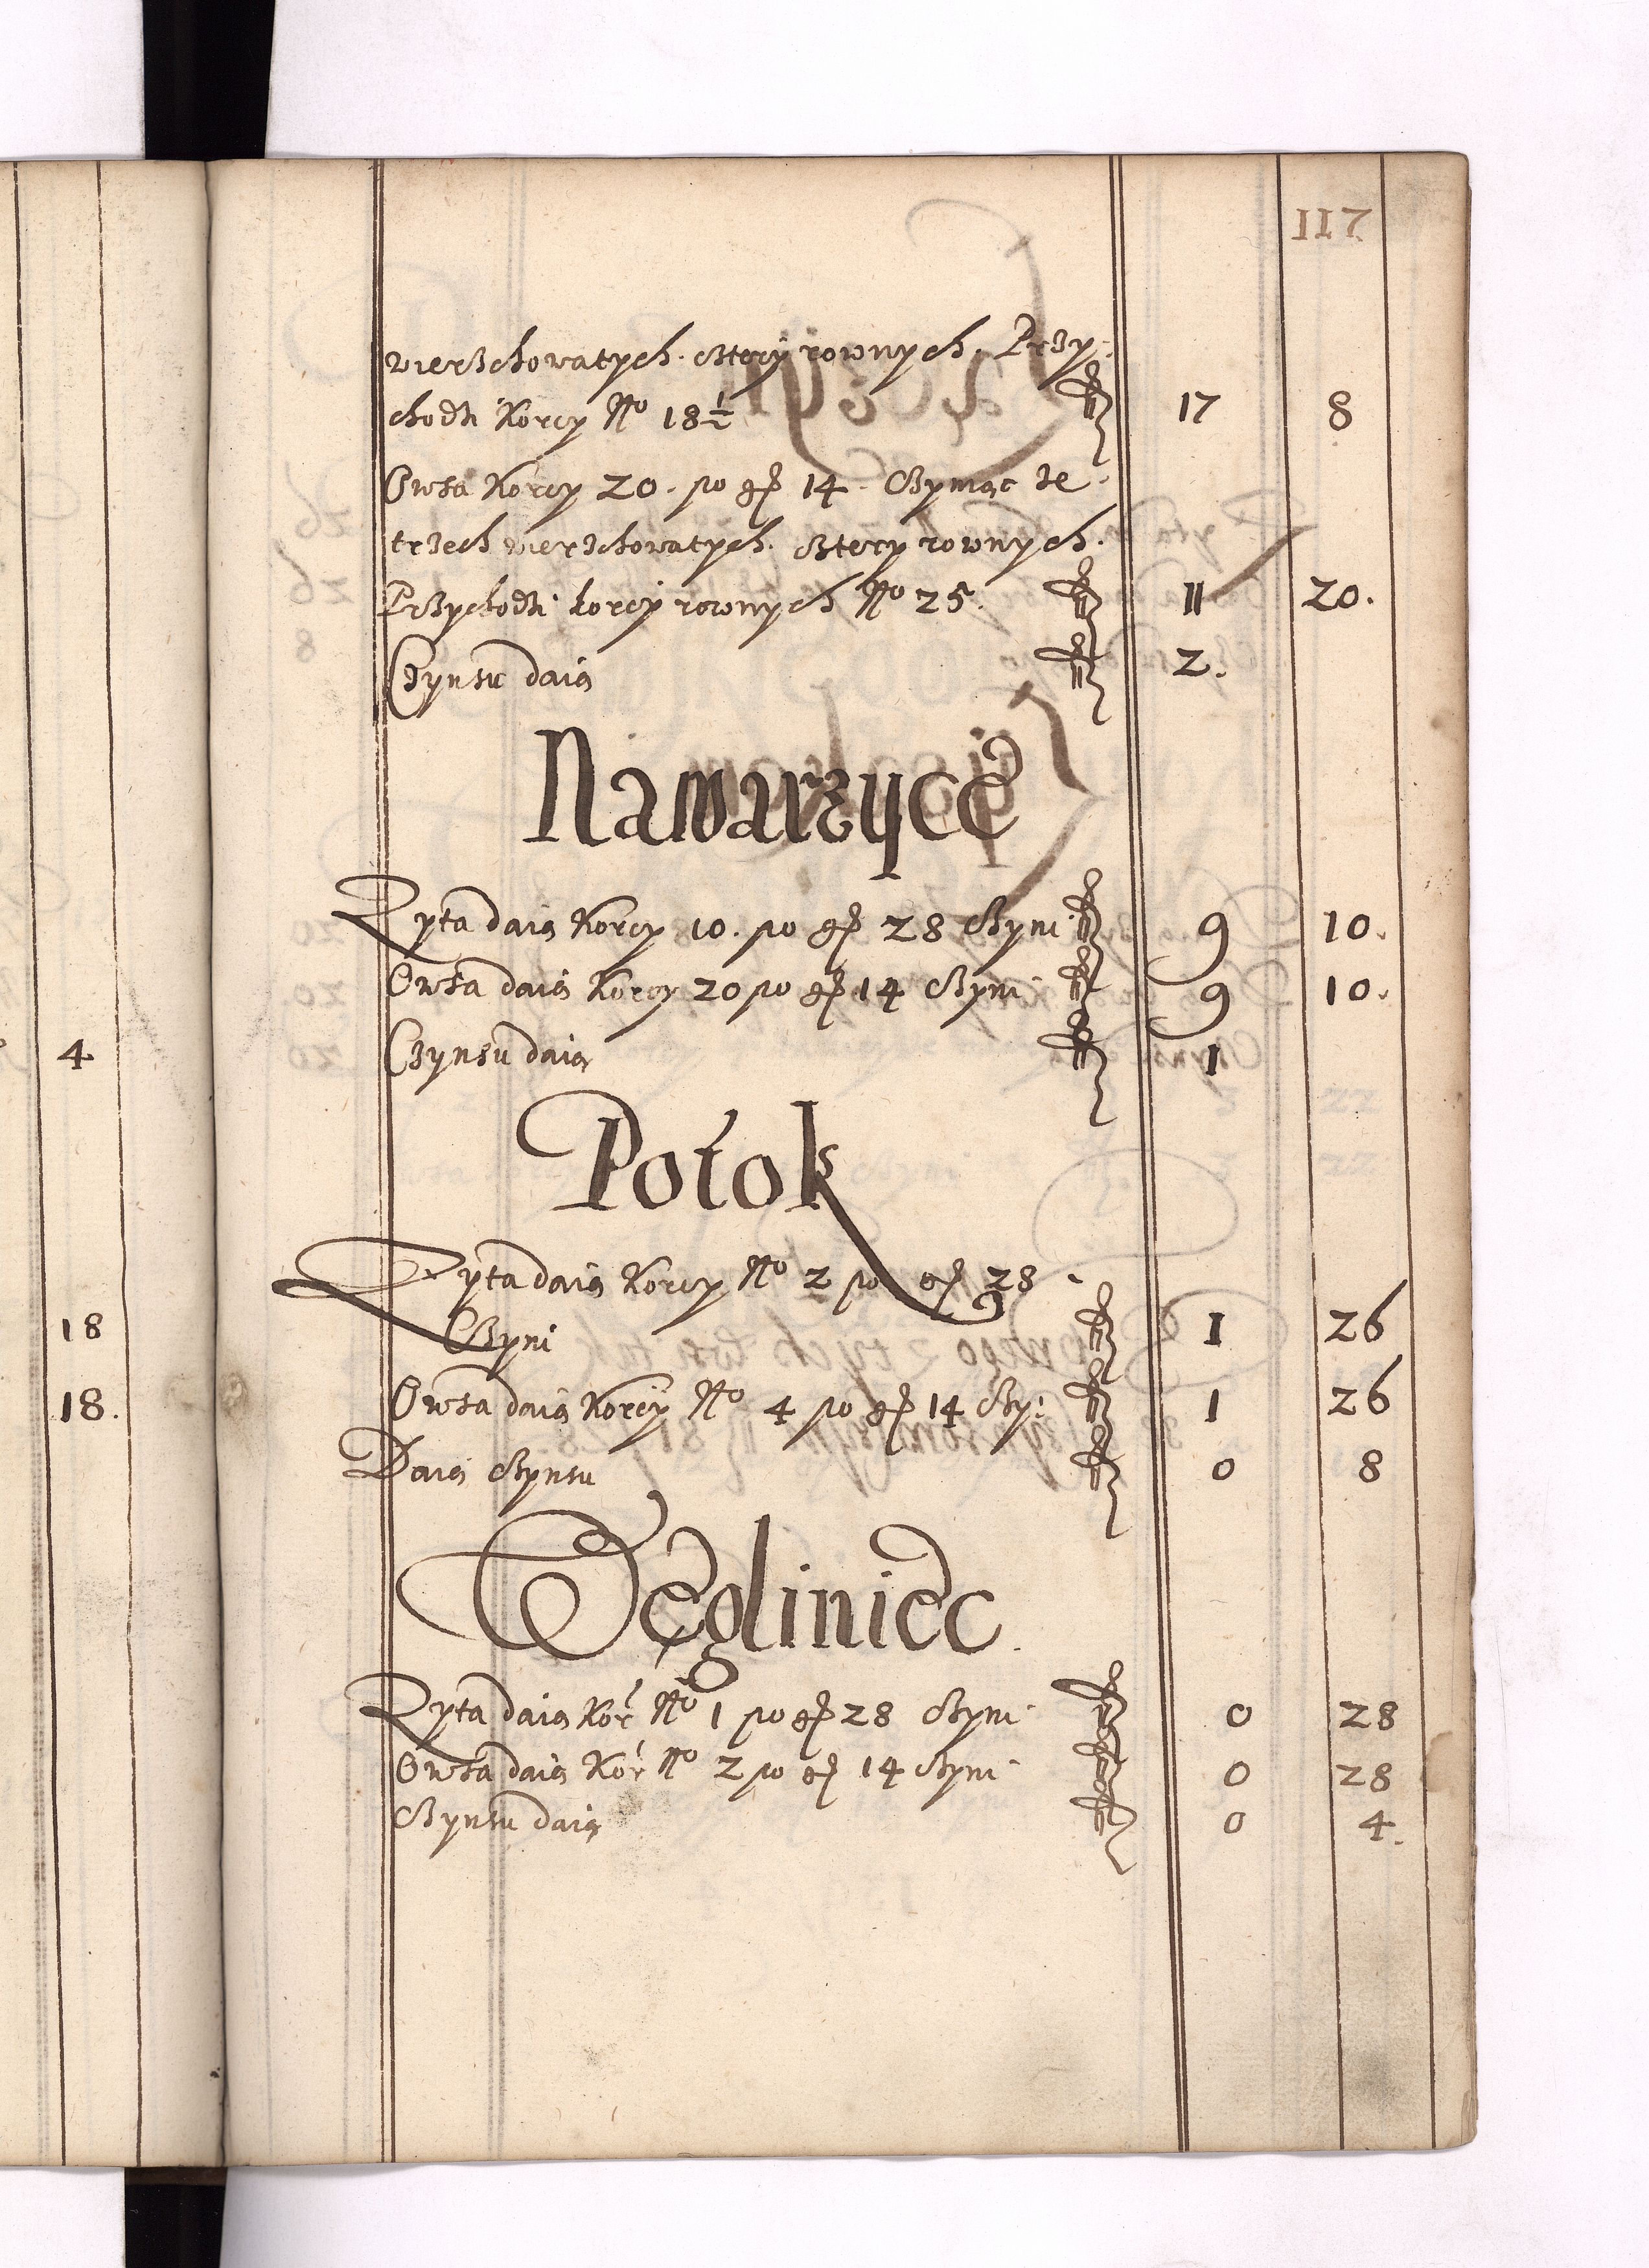 117
wierzchowatych. cztery rownych. Przy-
chodzi Korcy No 18½ 17 8
Owsa Korcy 20. po gr 14. Czyniąc ze
trzech wierzchowatych. cztery rownych.
Przychodzi korcy rownych No 25. 11 20.
Czynsu daią 2.
Nawarzyce
Zyta daią Korcy 10. po gr 28 Czyni 9 10.
Owsa daią Korcy 20 po gr 14 Czyni 9 10.
Czynsu daią 1
Potok
Zyta daią Korcy No 2 po gr 28
Czyni 1 26
Owsa daią Korcy No 4 po gr 14 Czy: 1 26
Daią Czynsu 0 8
Cegliniec
Zyta daią Kor No 1 po gr 28 Czyni 0 28
Owsa daią Kor No 2 po gr 14 Czyni 0 28
Czynsu daią 0 4.
4
18
18.